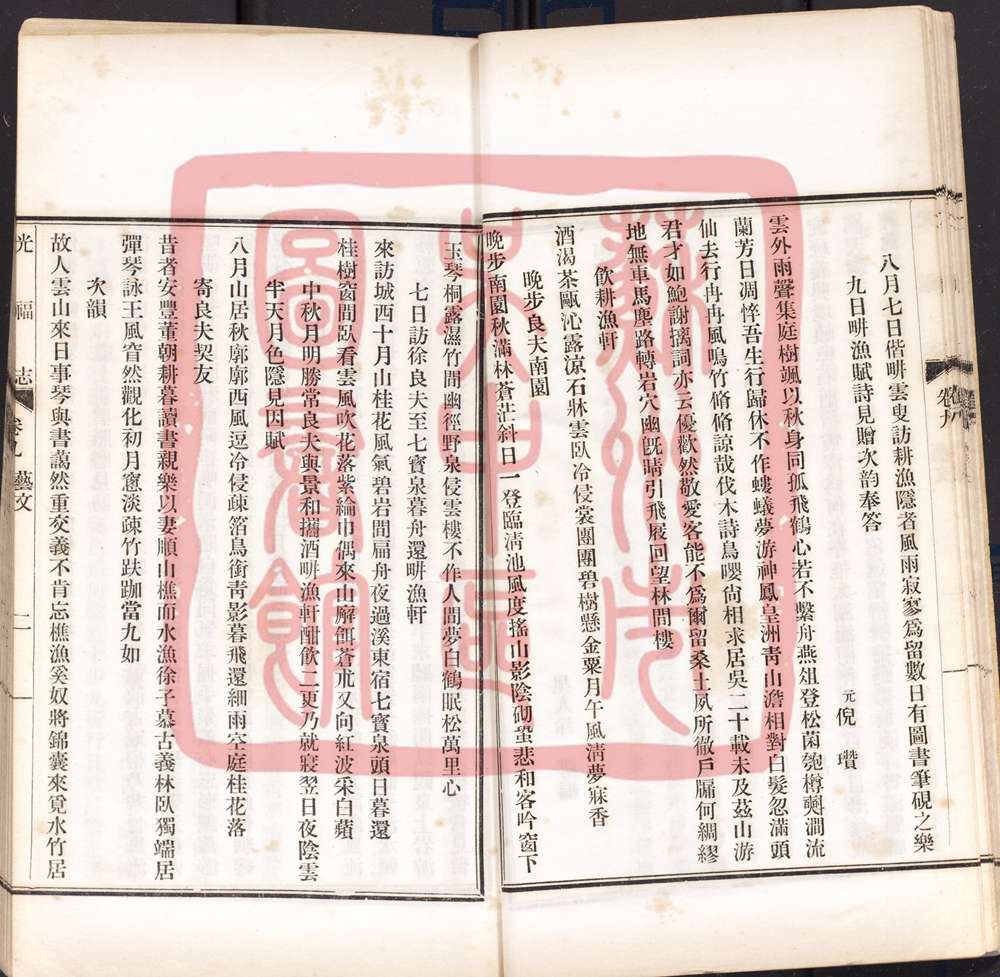 八月七日偕畊雲叟訪耕漁隱者風雨寂寥爲留數日有圖書筆硯之樂
九日畊漁賦詩見贈次韵奉答
元倪瓚
雲外雨聲集庭樹颯以秋身同孤飛鶴心若不繫舟燕俎登松菌匏樽㪺澗流
蘭芳日凋悴吾生行歸休不作螻蟻夢游神鳳皇洲靑山澹相對白髮忽滿頭
仙去行冉冉風鳴竹脩脩諒哉伐木詩鳥嚶尙相求居吳二十載未及茲山游
君才如鮑謝摛詞亦云優歡然敬愛客能不爲爾留桑土夙所徹戶牖何綢繆
地無車馬塵路轉岩穴幽旣晴引飛屐回望林間樓
飲耕漁軒
酒渴茶甌沁露涼石牀雲臥冷侵裳團團碧樹懸金粟月午風淸夢寐香
晚步良夫南園
晚步南園秋滿林蒼茫斜日一登臨淸池風度搖山影陰砌蛩悲和客吟窗下
玉琴桐露濕竹間幽徑野泉侵雲樓不作人間夢白鶴眠松萬里心
七日訪徐良夫至七寶泉暮舟還畊漁軒
來訪城西十月山桂花風氣碧岩間扁舟夜過溪東宿七寶泉頭日暮還
桂樹窗間臥看雲風吹花落紫綸巾偶來山解餌蒼朮又向紅波采白蘋
中秋月明勝常良夫與景和攜酒畊漁軒酣飲二更乃就寢翌日夜陰雲
半天月色隱見因賦
八月山居秋廓廓西風逗冷侵疎箔鳥銜靑影暮飛還細雨空庭桂花落
寄良夫契友
昔者安豐董朝耕暮讀書親樂以妻順山樵而水漁徐子慕古義林臥獨端居
彈琴詠王風窅然觀化初月窻淡疎竹趺跏當九如
次韻
故人雲山來日事琴與書藹然重交義不肯忘樵漁奚奴將錦囊來覓水竹居
光福志 卷九 藝文 二